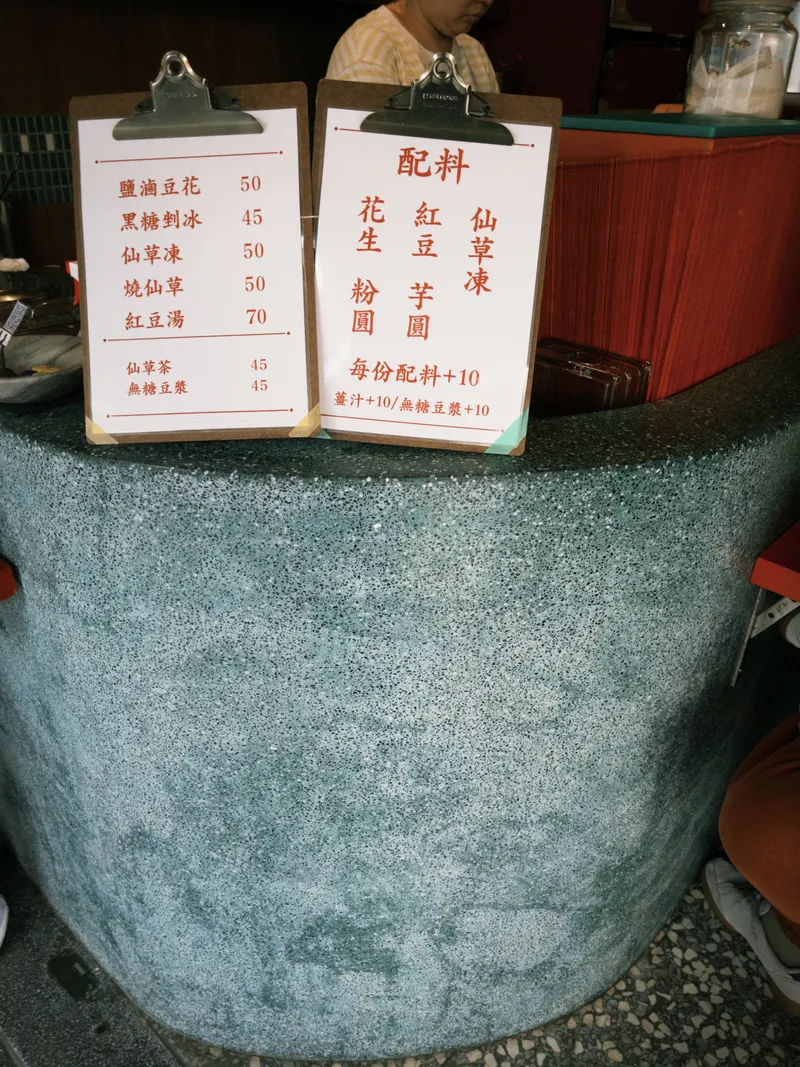 鹽滷豆花 50
黑糖剉冰 45
仙草凍 50
燒仙草 50
紅豆湯 70
仙草茶 45
無糖豆漿 45
配料
仙草凍
紅豆 芋圓
花生 粉圓
每份配料+10
薑汁+10/無糖豆漿+10